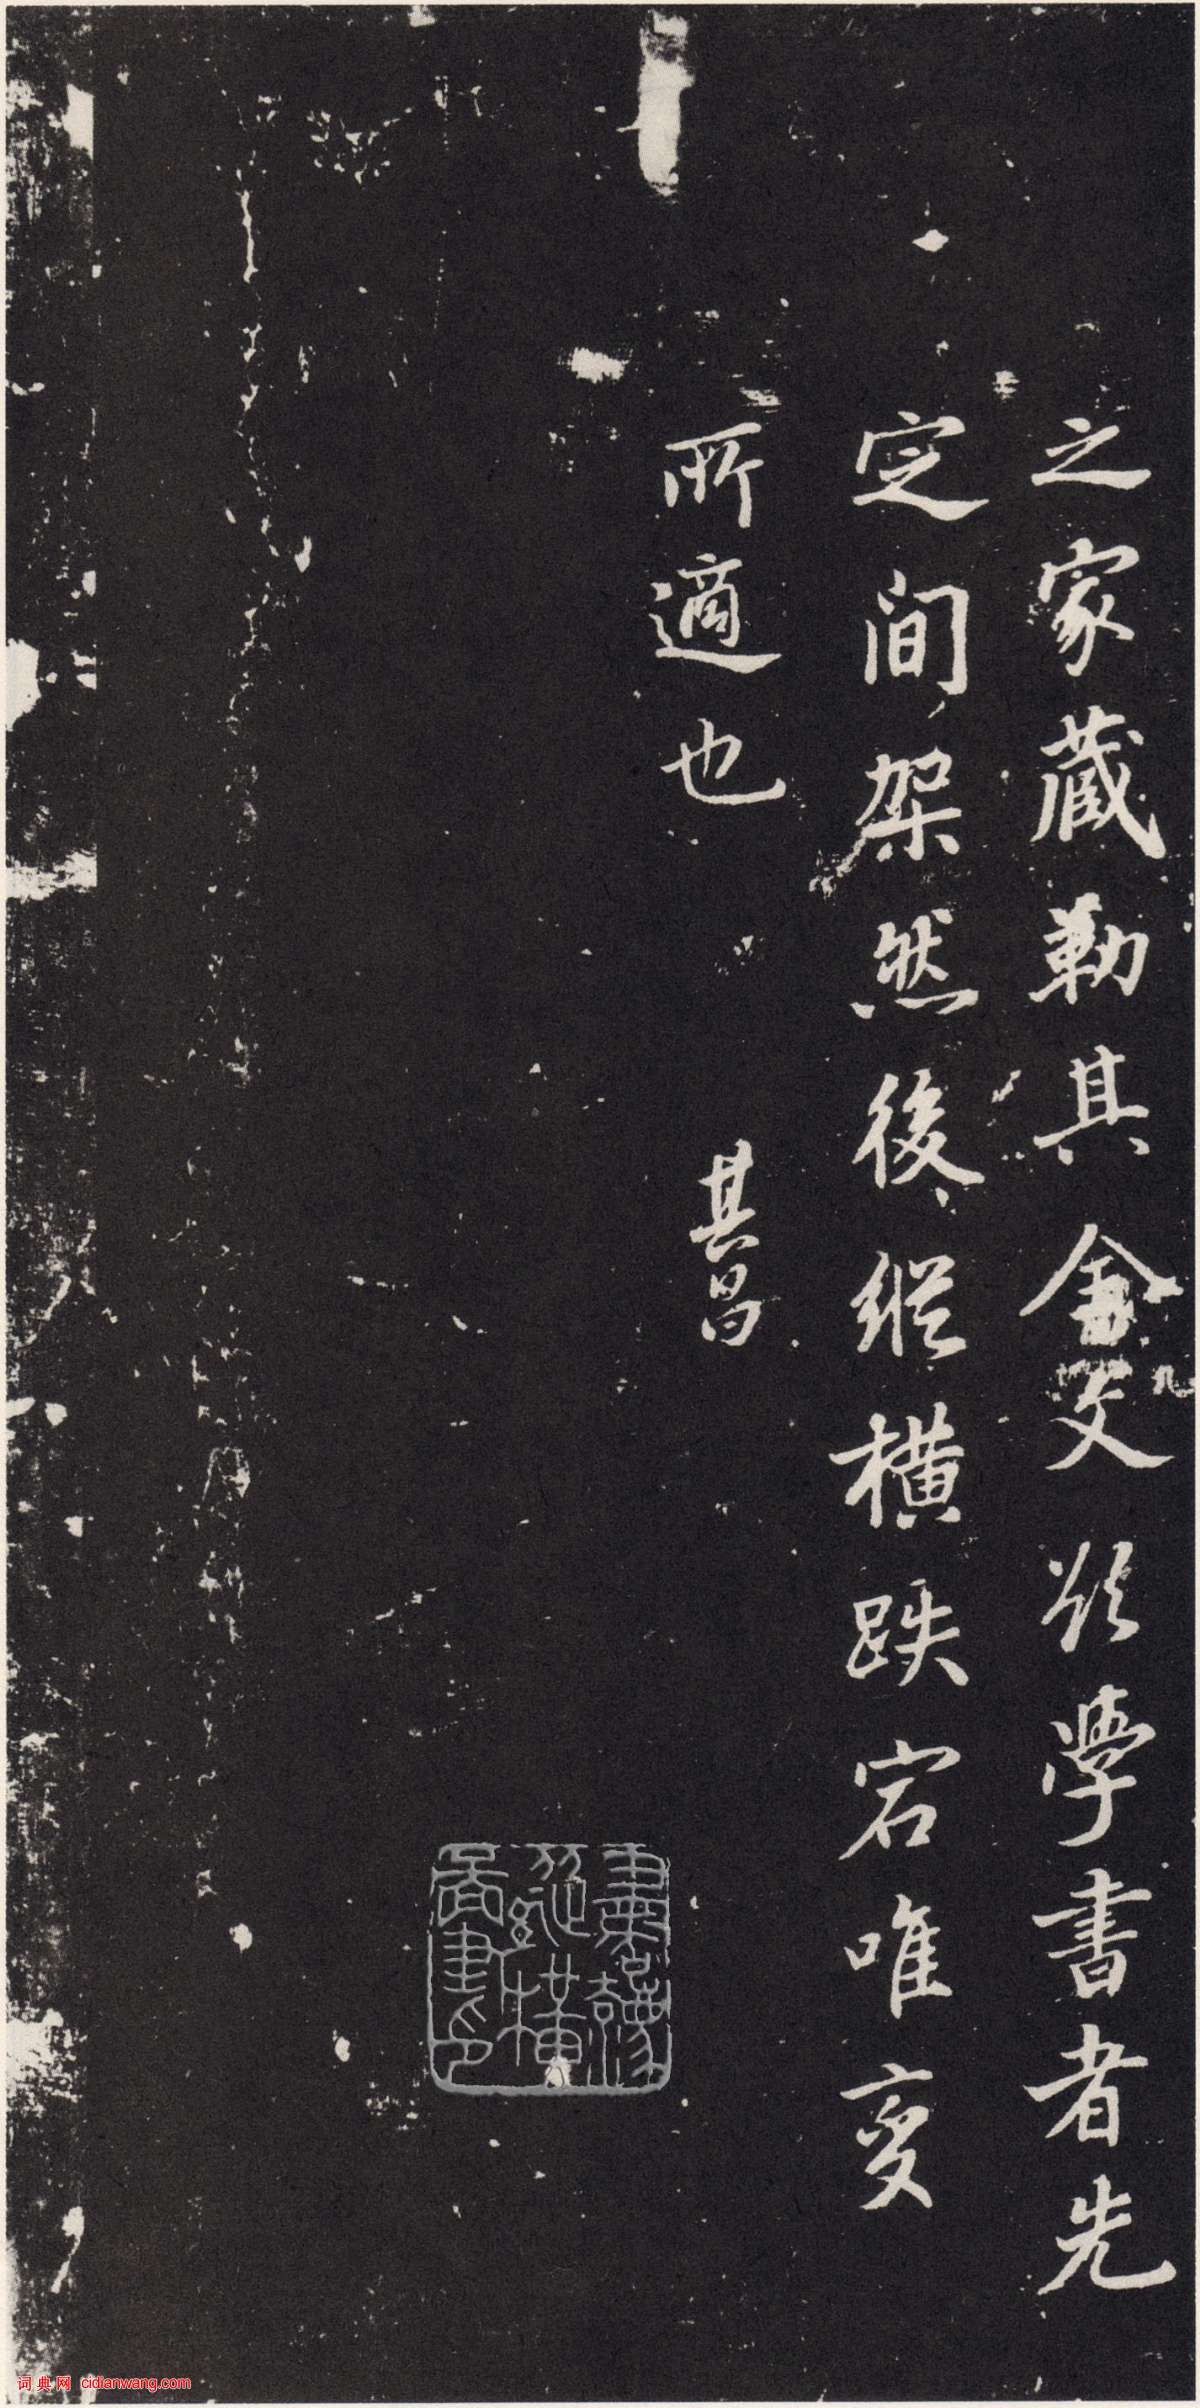 之家藏勒其全文欲學書者先
定间架然後縱橫跌宕唯變
所適也
其昌
词典网 cidianwang.com